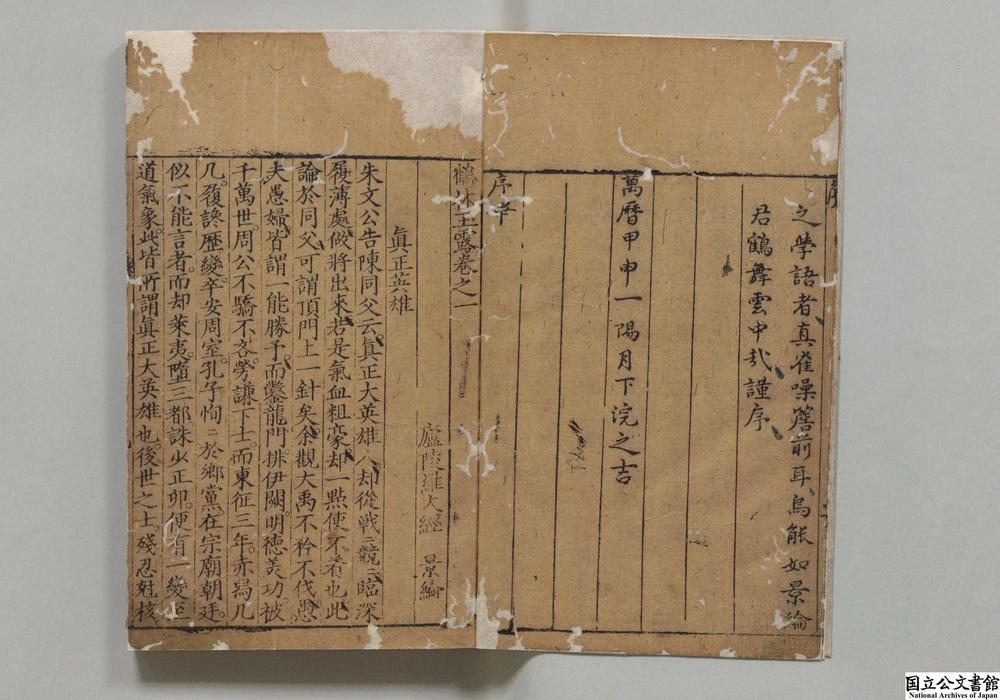 之學語者真雀噪簷前耳烏能如景綸
君鶴舞雲中哉謹序
萬曆甲申一陽月下浣之吉
序
鶴林玉露卷之一
廬陵羅大經 景綸
眞正英雄
朱文公告陳同父云眞正大英雄人却從戰〻競〻臨深
履薄處做將出來若是氣血粗豪却一點使不着也此
論於同父可謂頂門上一針矣余觀大禹不矜不伐愚
夫愚婦皆謂一能勝予而鑿龍門排伊闕明德美功被
千萬世周公不驕不吝勞謙下士而東征三年赤舄几
几䪺讒歷變卒安周室孔子恂〻於鄉黨在宗廟朝廷
似不能言者而却萊夷墮三都誅少正卯便有一變至
道氣象此皆所謂眞正大英雄也後世之士殘忍尅核
国立公文書館
National Archives of Japan